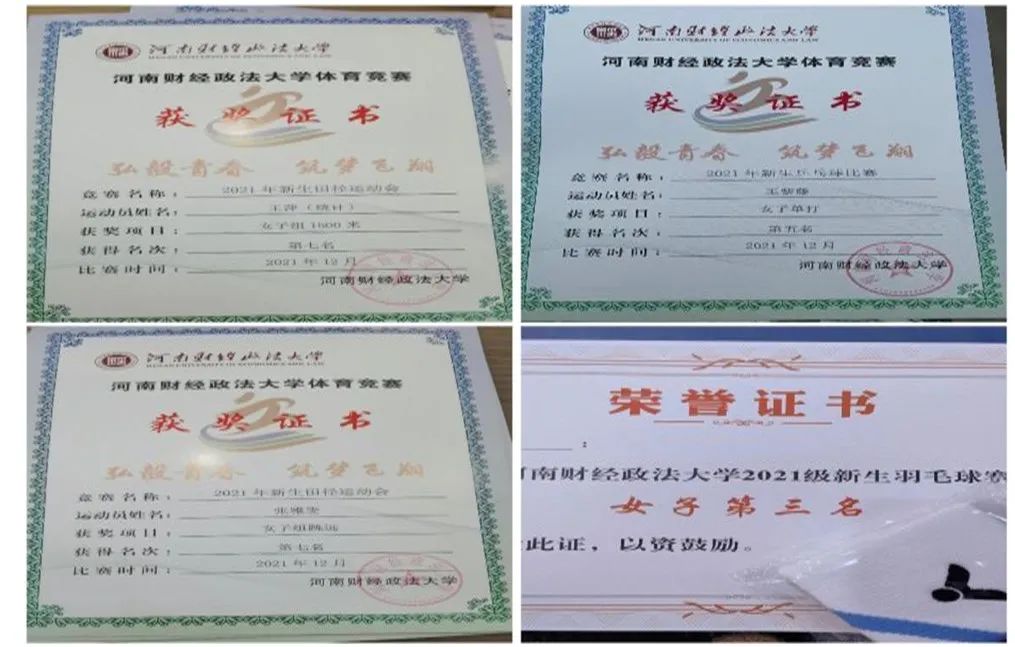 河南财经政法大学
HENAN UNIVERSITY OF ECONOMICS AND LAW
河南财经政法大学体育竞赛
获奖证书
弘毅青春 筑梦飞翔
竞赛名称：2021年新生田径运动会
运动员姓名：王萍（统计）
获奖项目：女子组1500米
获得名次：第七名
比赛时间：2021年12月
河南财经政法大学
河南财经政法大学
HENAN UNIVERSITY OF ECONOMICS AND LAW
河南财经政法大学体育竞赛
获奖证书
弘毅青春 筑梦飞翔
竞赛名称：2021年新生乒乓球比赛
运动员姓名：王紫藤
获奖项目：女子单打
获得名次：第五名
比赛时间：2021年12月
河南财经政法大学
河南财经政法大学
HENAN UNIVERSITY OF ECONOMICS AND LAW
河南财经政法大学体育竞赛
获奖证书
弘毅青春 筑梦飞翔
竞赛名称：2021年新生田径运动会
运动员姓名：张雅雯
获奖项目：女子组跳远
获得名次：第七名
比赛时间：2021年12月
河南财经政法大学
荣誉证书
：
南财经政法大学2021级新生羽毛球赛
女子第三名
此证，以资鼓励。